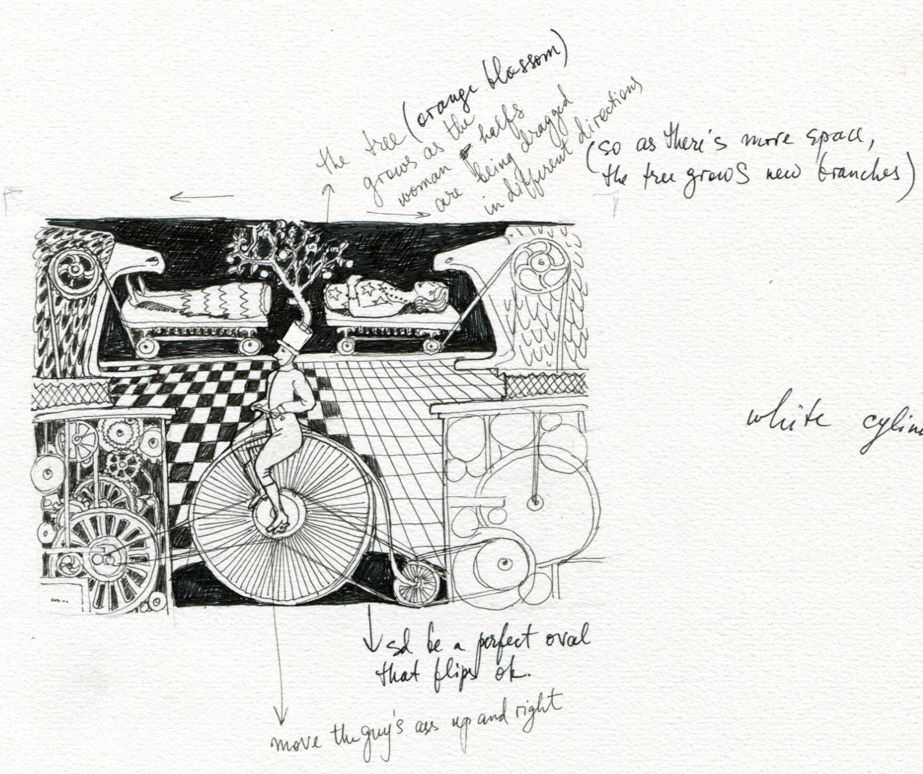 the tree (orange blossom)
grows as the
woman halfs
are being dragged
in different directions
(so as there's more space,
the tree growS new branches)
white cylin
↓ sd be a perfect oval
that flips ok.
move the guy's ass up and right